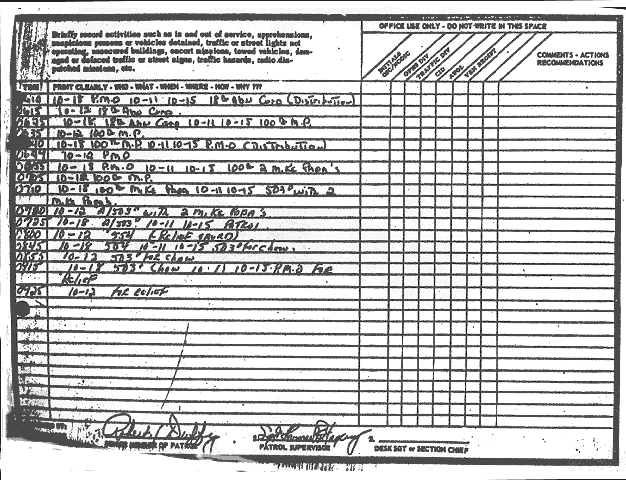 Briefly record activities such as in and out of service, apprehensions,
suspicious persons or vehicles detained, traffic or street lights not
operating, unsecured buildings, escort missions, towed vehicles, dam-
aged or defaced traffic or street signs, traffic hazards, radio dis-
patched missions, etc.
OFFICE USE ONLY - DO NOT WRITE IN THIS SPACE
OPNS DIV
TRAFFIC DIV
CID
COMMENTS - ACTIONS
RECOMMENDATIONS
TIME PRINT CLEARLY - WHO - WHAT - WHEN - WHERE - HOW - WHY ???
10-18 P.M.O 10-11 10-15 18th Abn Corp (Distribution)
0615 10-12 18th Abn Corp.
0625 10-18 18th Abn Corp 10-11 10-15 100th M.P.
0635 10-12 100th M.P.
10-18 100th M.P. 10-11 10-15 P.M.O (Distribution)
10-12 P.M.O
10-18 P.M.O 10-11 10-15 100th 2 Mike Papa's
0705 10-12 100th M.P.
0710 10-18 100th Mike Papa 10-11 10-15 503rd with 2
Mike Papa's.
10-12 A/503rd with 2 Mike Papa's
0725 10-18 A/503rd 10-11 10-15 Patrol
0800 10-12 554
0845 10-18 554 10-11 10-15 503rd For Chow.
0855 10-12 503rd For Chow
0915 10-18 503rd Chow 10-11 10-15 P.M.O For
Relief
0925 10-12 For Relief
MEMBER OF PATROL
PATROL SUPERVISOR
DESK SGT or SECTION CHIEF